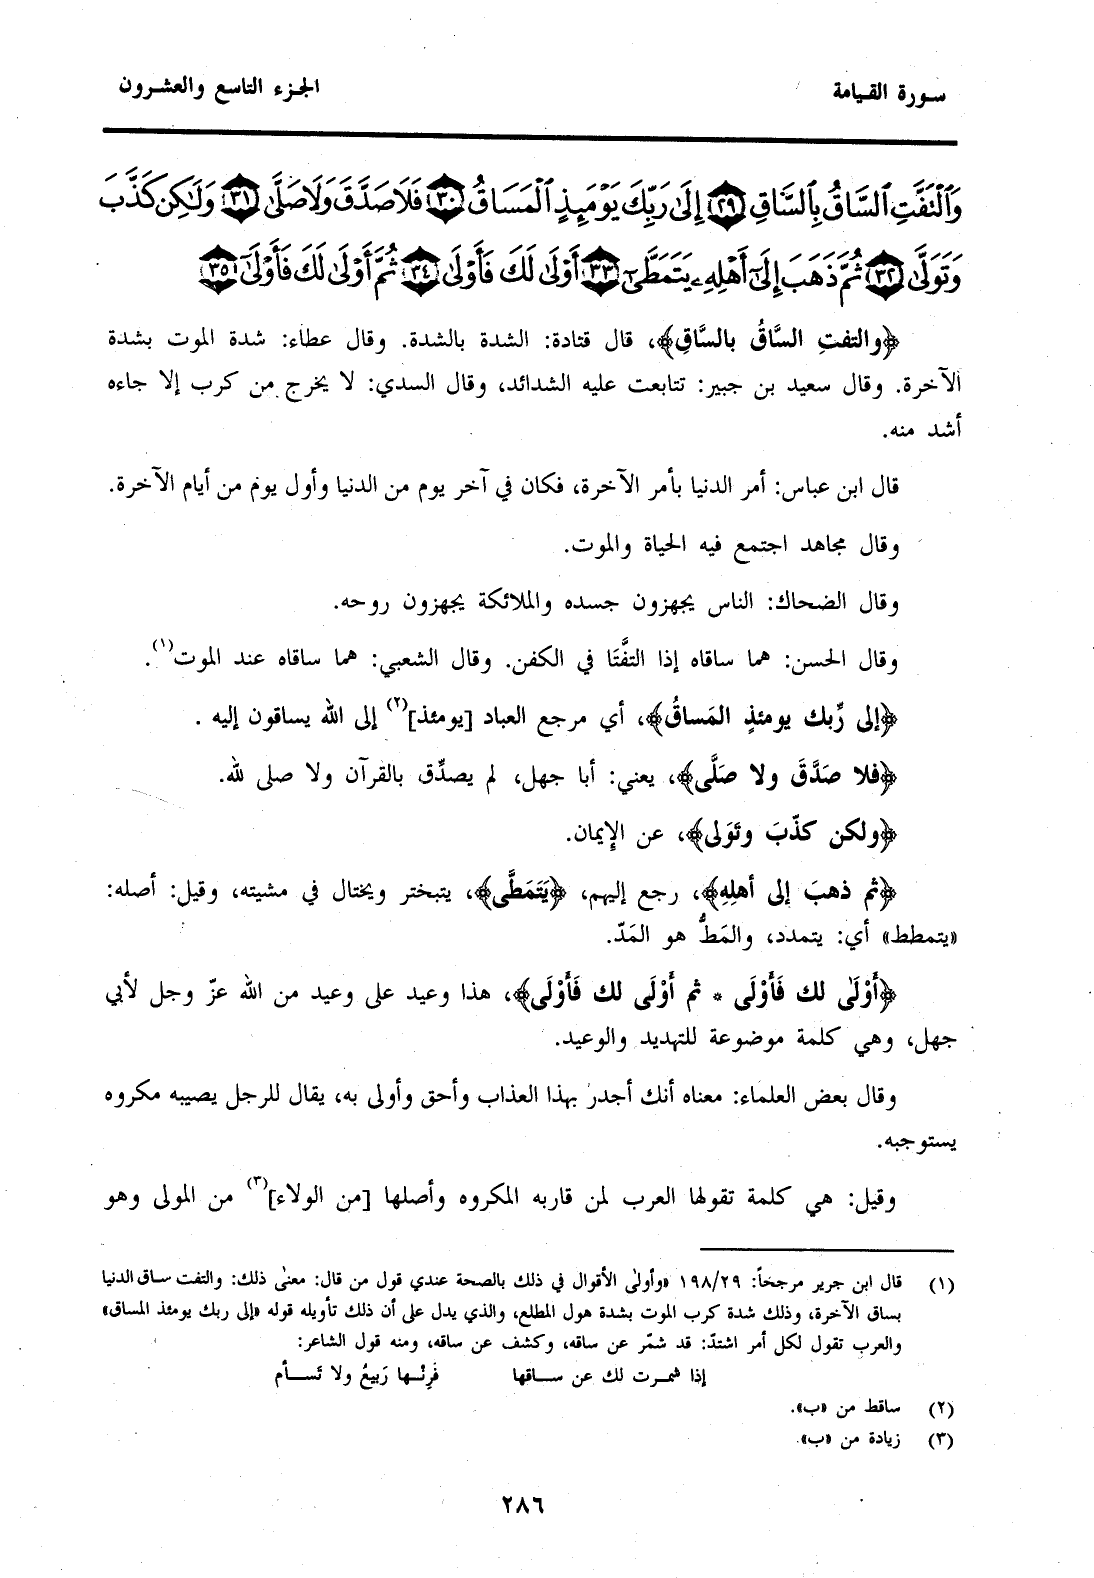 سورة القيامة
الجزء التاسع والعشرون
وَٱلْتَفَّتِ ٱلسَّاقُ بِٱلسَّاقِ ٢٩ إِلَىٰ رَبِّكَ يَوْمَئِذٍ ٱلْمَسَاقُ ٣٠ فَلَا صَدَّقَ وَلَا صَلَّىٰ ٣١ وَلَـٰكِن كَذَّبَ
وَتَوَلَّىٰ ٣٢ ثُمَّ ذَهَبَ إِلَىٰٓ أَهْلِهِۦ يَتَمَطَّىٰٓ ٣٣ أَوْلَىٰ لَكَ فَأَوْلَىٰ ٣٤ ثُمَّ أَوْلَىٰ لَكَ فَأَوْلَىٰٓ ٣٥
﴿والتفتِ السَّاقُ بالسَّاقِ﴾، قال قتادة: الشدة بالشدة. وقال عطاء: شدة الموت بشدة
الآخرة. وقال سعيد بن جبير: تتابعت عليه الشدائد، وقال السدي: لا يخرج من كرب إلا جاءه
أشد منه.
قال ابن عباس: أمر الدنيا بأمر الآخرة، فكان في آخر يوم من الدنيا وأول يوم من أيام الآخرة.
وقال مجاهد اجتمع فيه الحياة والموت.
وقال الضحاك: الناس يجهزون جسده والملائكة يجهزون روحه.
وقال الحسن: هما ساقاه إذا التفَّتَا في الكفن. وقال الشعبي: هما ساقاه عند الموت(١).
﴿إلى ربِّك يومئذٍ المَساقُ﴾، أي مرجع العباد [يومئذ](٢) إلى الله يساقون إليه .
﴿فلا صَدَّقَ ولا صَلَّى﴾، يعني: أبا جهل، لم يصدِّق بالقرآن ولا صلى لله.
﴿ولكن كذّبَ وتَولى﴾، عن الإِيمان.
﴿ثم ذهبَ إلى أهلِهِ﴾، رجع إليهم، ﴿يَتَمَطَّى﴾، يتبختر ويختال في مشيته، وقيل: أصله:
«يتمطط» أي: يتمدد، والمَطُّ هو المَدّ.
﴿أَوْلَىٰ لك فَأَوْلَى * ثم أَوْلَى لك فَأَوْلَى﴾، هذا وعيد على وعيد من الله عزّ وجل لأبي
جهل، وهي كلمة موضوعة للتهديد والوعيد.
وقال بعض العلماء: معناه أنك أجدر بهذا العذاب وأحق وأولى به، يقال للرجل يصيبه مكروه
يستوجبه.
وقيل: هي كلمة تقولها العرب لمن قاربه المكروه وأصلها [من الولاء](٣) من المولى وهو
(١) قال ابن جرير مرجحاً: ١٩٨/٢٩ «وأولىٰ الأقوال في ذلك بالصحة عندي قول من قال: معنىٰ ذلك: والتفت ساق الدنيا
بساق الآخرة، وذلك شدة كرب الموت بشدة هول المطلع، والذي يدل على أن ذلك تأويله قوله «إلى ربك يومئذ المساق»
والعرب تقول لكل أمر اشتدّ: قد شمّر عن ساقه، وكشف عن ساقه، ومنه قول الشاعر:
إذا شمرت لك عن ساقها فَرِنْها رَبيعُ ولا تَسأم
(٢) ساقط من «ب».
(٣) زيادة من «ب».
٢٨٦